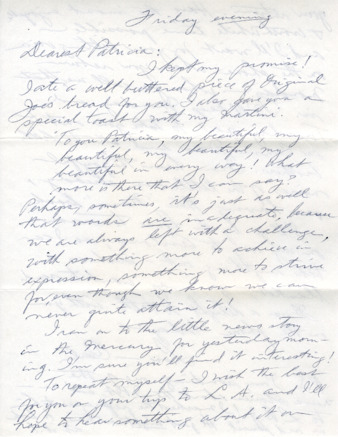 Friday evening
Dearest Patricia:
I kept my promise!
I ate a well buttered piece of Original
Joe's bread for you. I also gave you a
special toast with my martini.
To you Patricia, my beautiful, my
beautiful, my beautiful, my
beautiful in every way! What
more is there that I can say?
Perhaps, sometimes, it's just as well
that words are inadequate, because
we are always left with a challenge,
with something more to achieve in
expression, something more to strive
for, even though we know we can
never quite attain it!
I ran on to the little news story
in the Mercury for yesterday morn-
ing. I'm sure you'll find it interesting!
To repeat myself - I wish the best
for you on your trip to L.A. and I'll
hope to hear something about it on